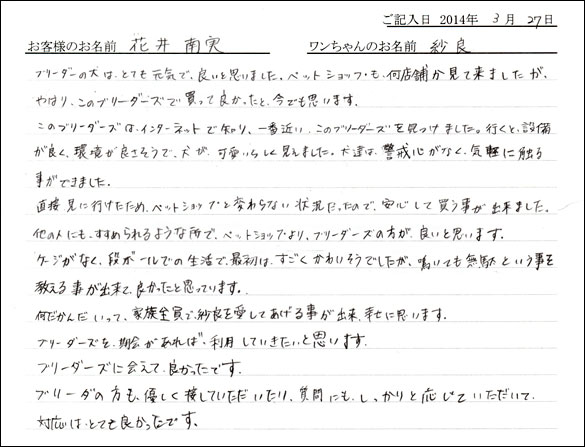 ご記入日 2014年 3月 27日
お客様のお名前 花井 南実 ワンちゃんのお名前 紗良
ブリーダーの犬は、とても元気で、良いと思いました。ペットショップも、何店舗か見て来ましたが、
やはり、このブリーダーズで買って良かったと、今でも思います。
このブリーダーズは、インターネットで知り、一番近い、このブリーダーズを見つけました。行くと、設備
が良く、環境が良さそうで、犬が、可愛いらしく見えました。犬達は、警戒心がなく、気軽に触る
事ができました。
直接見に行けたため、ペットショップと変わらない状況だったので、安心して買う事が出来ました。
他の人にも、すすめられるような所で、ペットショップより、ブリーダーズの方が、良いと思います。
ケージがなく、段ボールでの生活で、最初は、すごくかわいそうでしたが、鳴いても無駄という事を
教える事が出来て、良かったと思っています。
何だかんだいって、家族全員で、紗良を愛してあげる事が出来、幸せに思います。
ブリーダーズを、機会があれば、利用していきたいと思います。
ブリーダーズに会えて、良かったです。
ブリーダの方も、優しく接していただいたり、質問にも、しっかりと応じていただいて、
対応は、とても良かったです。